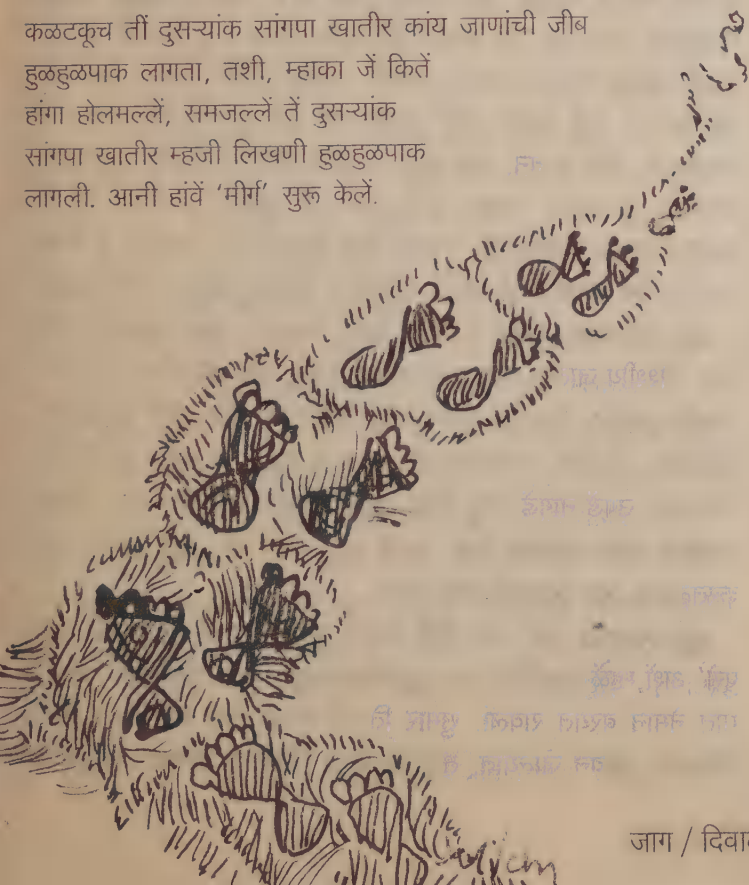 कळटकूच तीं दुसऱ्यांक सांगपा खातीर कांय जाणांची जीब
हुळहुळपाक लागता, तशी, म्हाका जें कितें
हांगा होलमल्लें, समजल्लें तें दुसऱ्यांक
सांगपा खातीर म्हजी लिखणी हुळहुळपाक
लागली. आनी हांवें ‘मीर्ग’ सुरू केलें.
जाग / दिवा